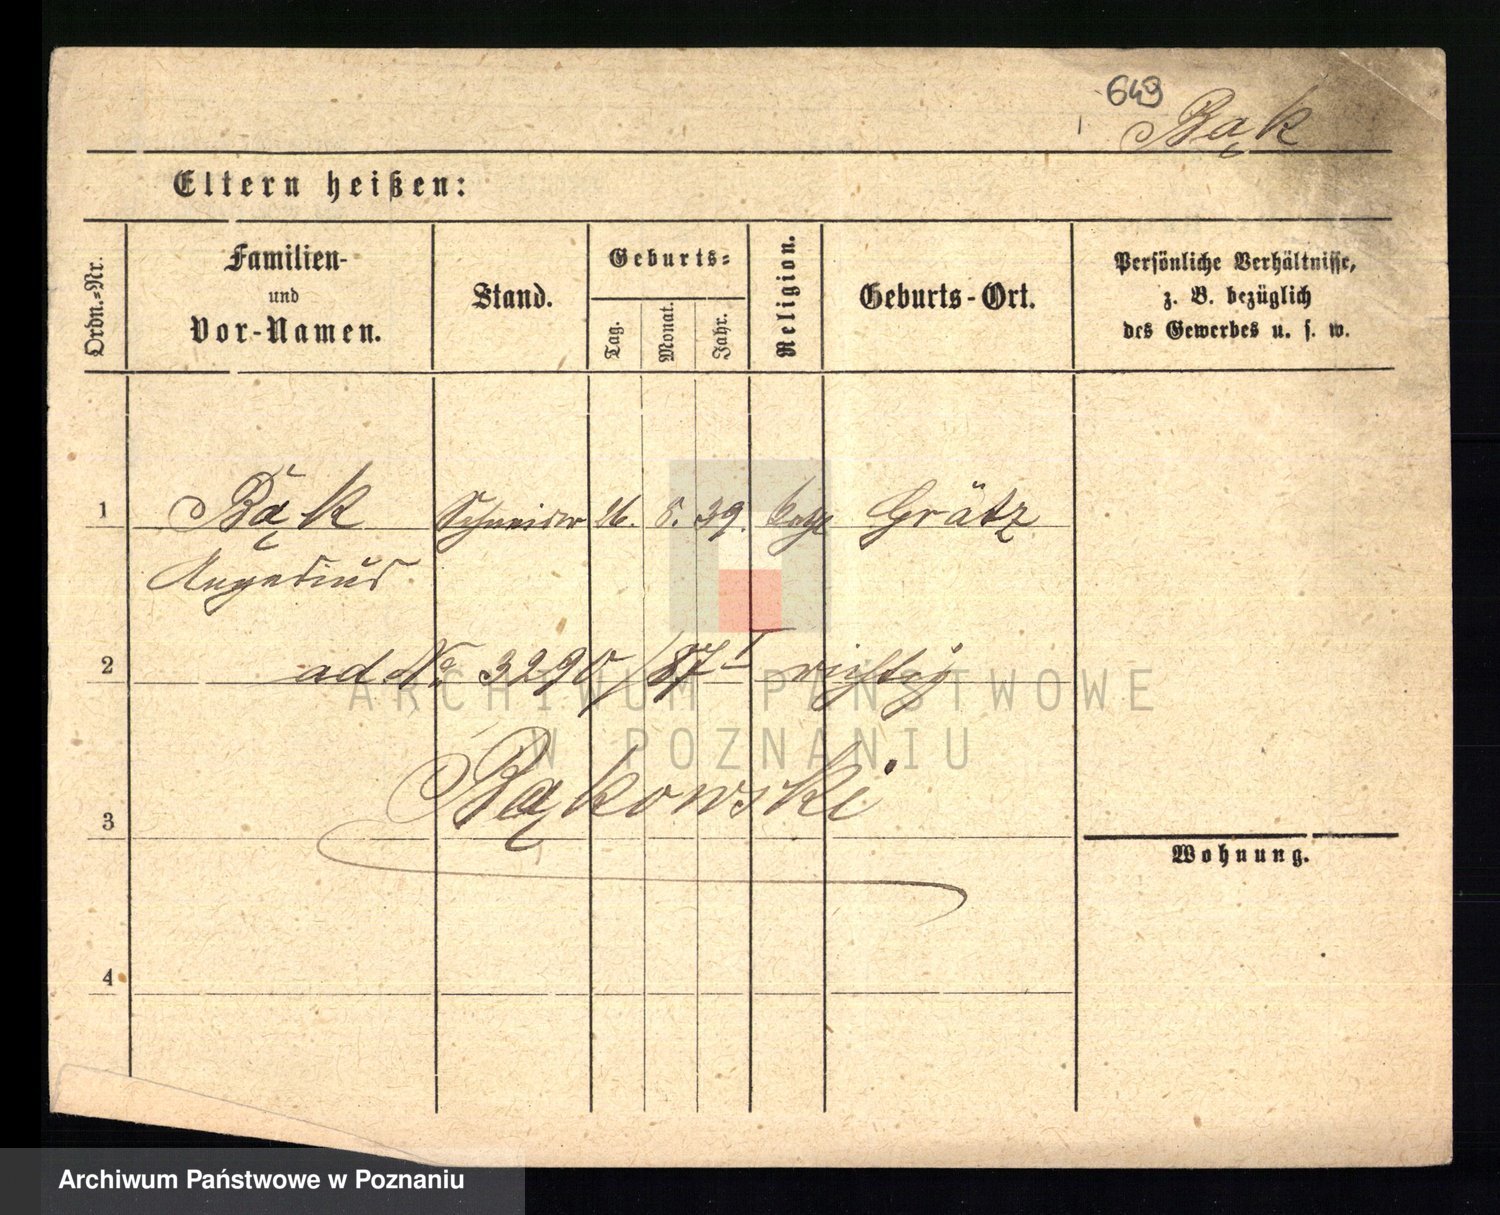 649
Bąk
Eltern heißen:
Ordn.=Nr.
Familien-
und
Vor-Namen.
Stand.
Geburts=
Tag.
Monat.
Jahr.
Religion.
Geburts-Ort.
Persönliche Verhältnisse,
z. B. bezüglich
des Gewerbes u. s. w.
1 Bąk Schneider 26. 8. 39. kath Grätz
2 ad No 3290/87 I richtig
Bąkowski
3
Wohnung.
4
ARCHIWUM PAŃSTWOWE
W POZNANIU
Archiwum Państwowe w Poznaniu